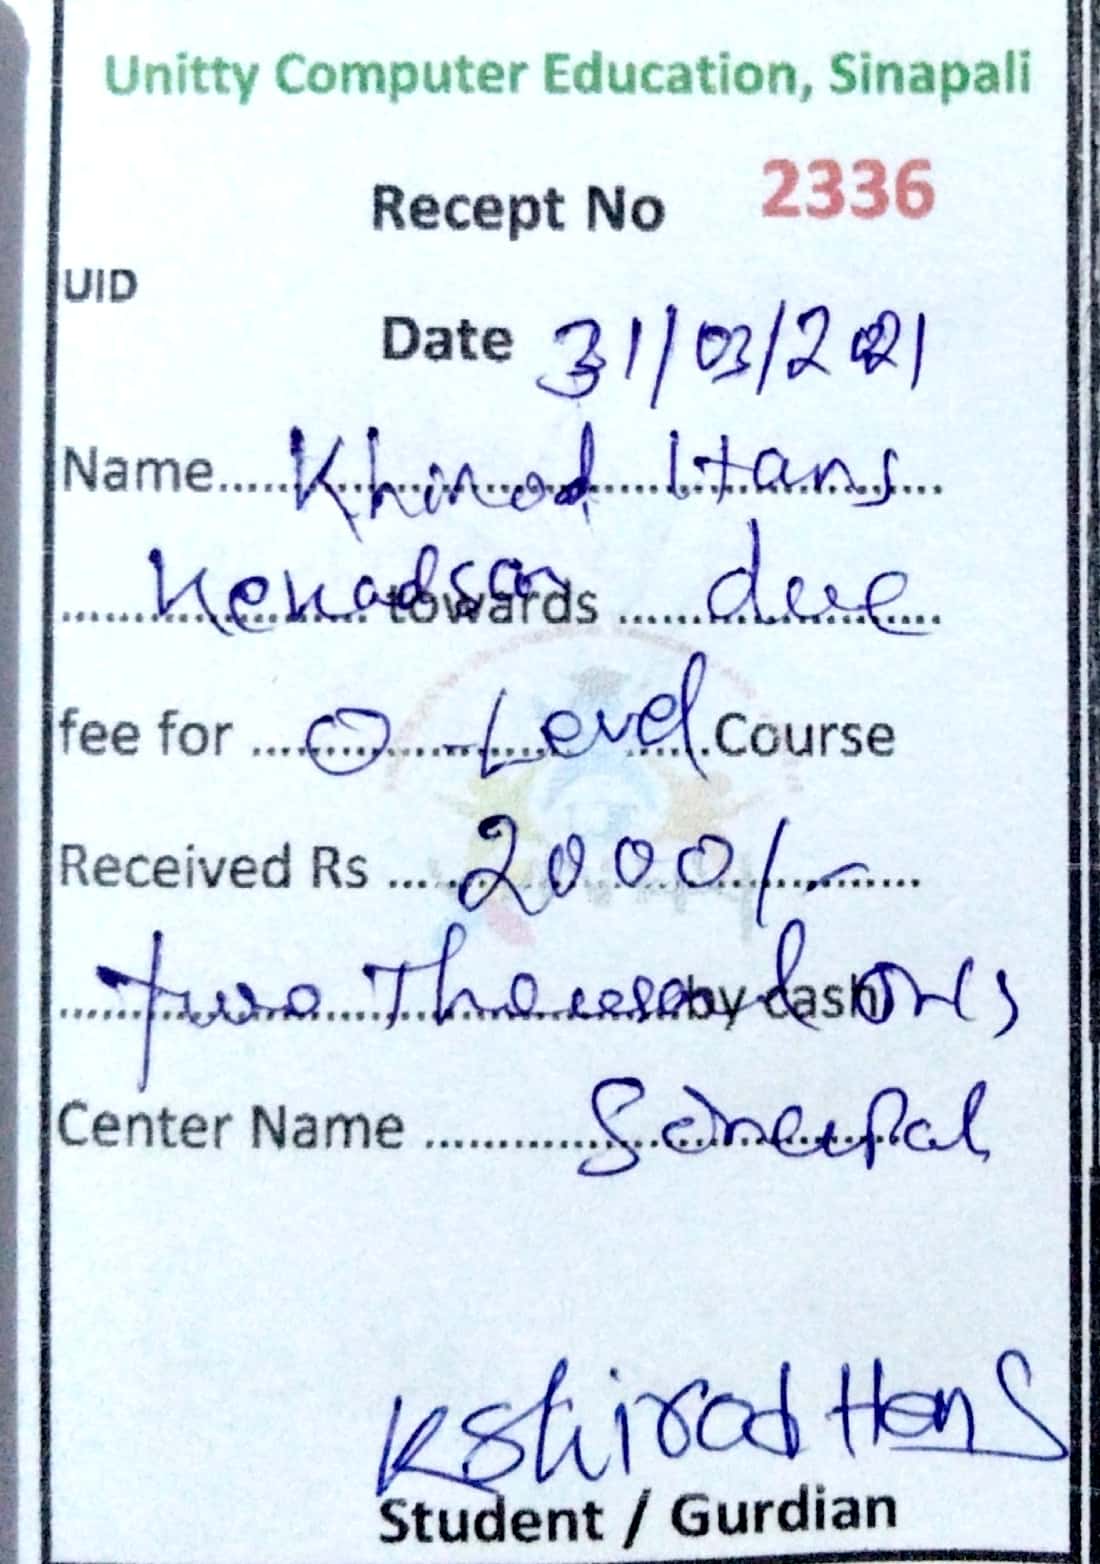 Unitty Computer Education, Sinapali
Recept No 2336
UID
Date 31/03/2021
Name..... Khirod Hans
towards ...... due
fee for ..... O - Level Course
Received Rs .... 2000/-
two Thousand by cash Only
Center Name ............ Sinapali
Kshirod Hans
Student / Gurdian